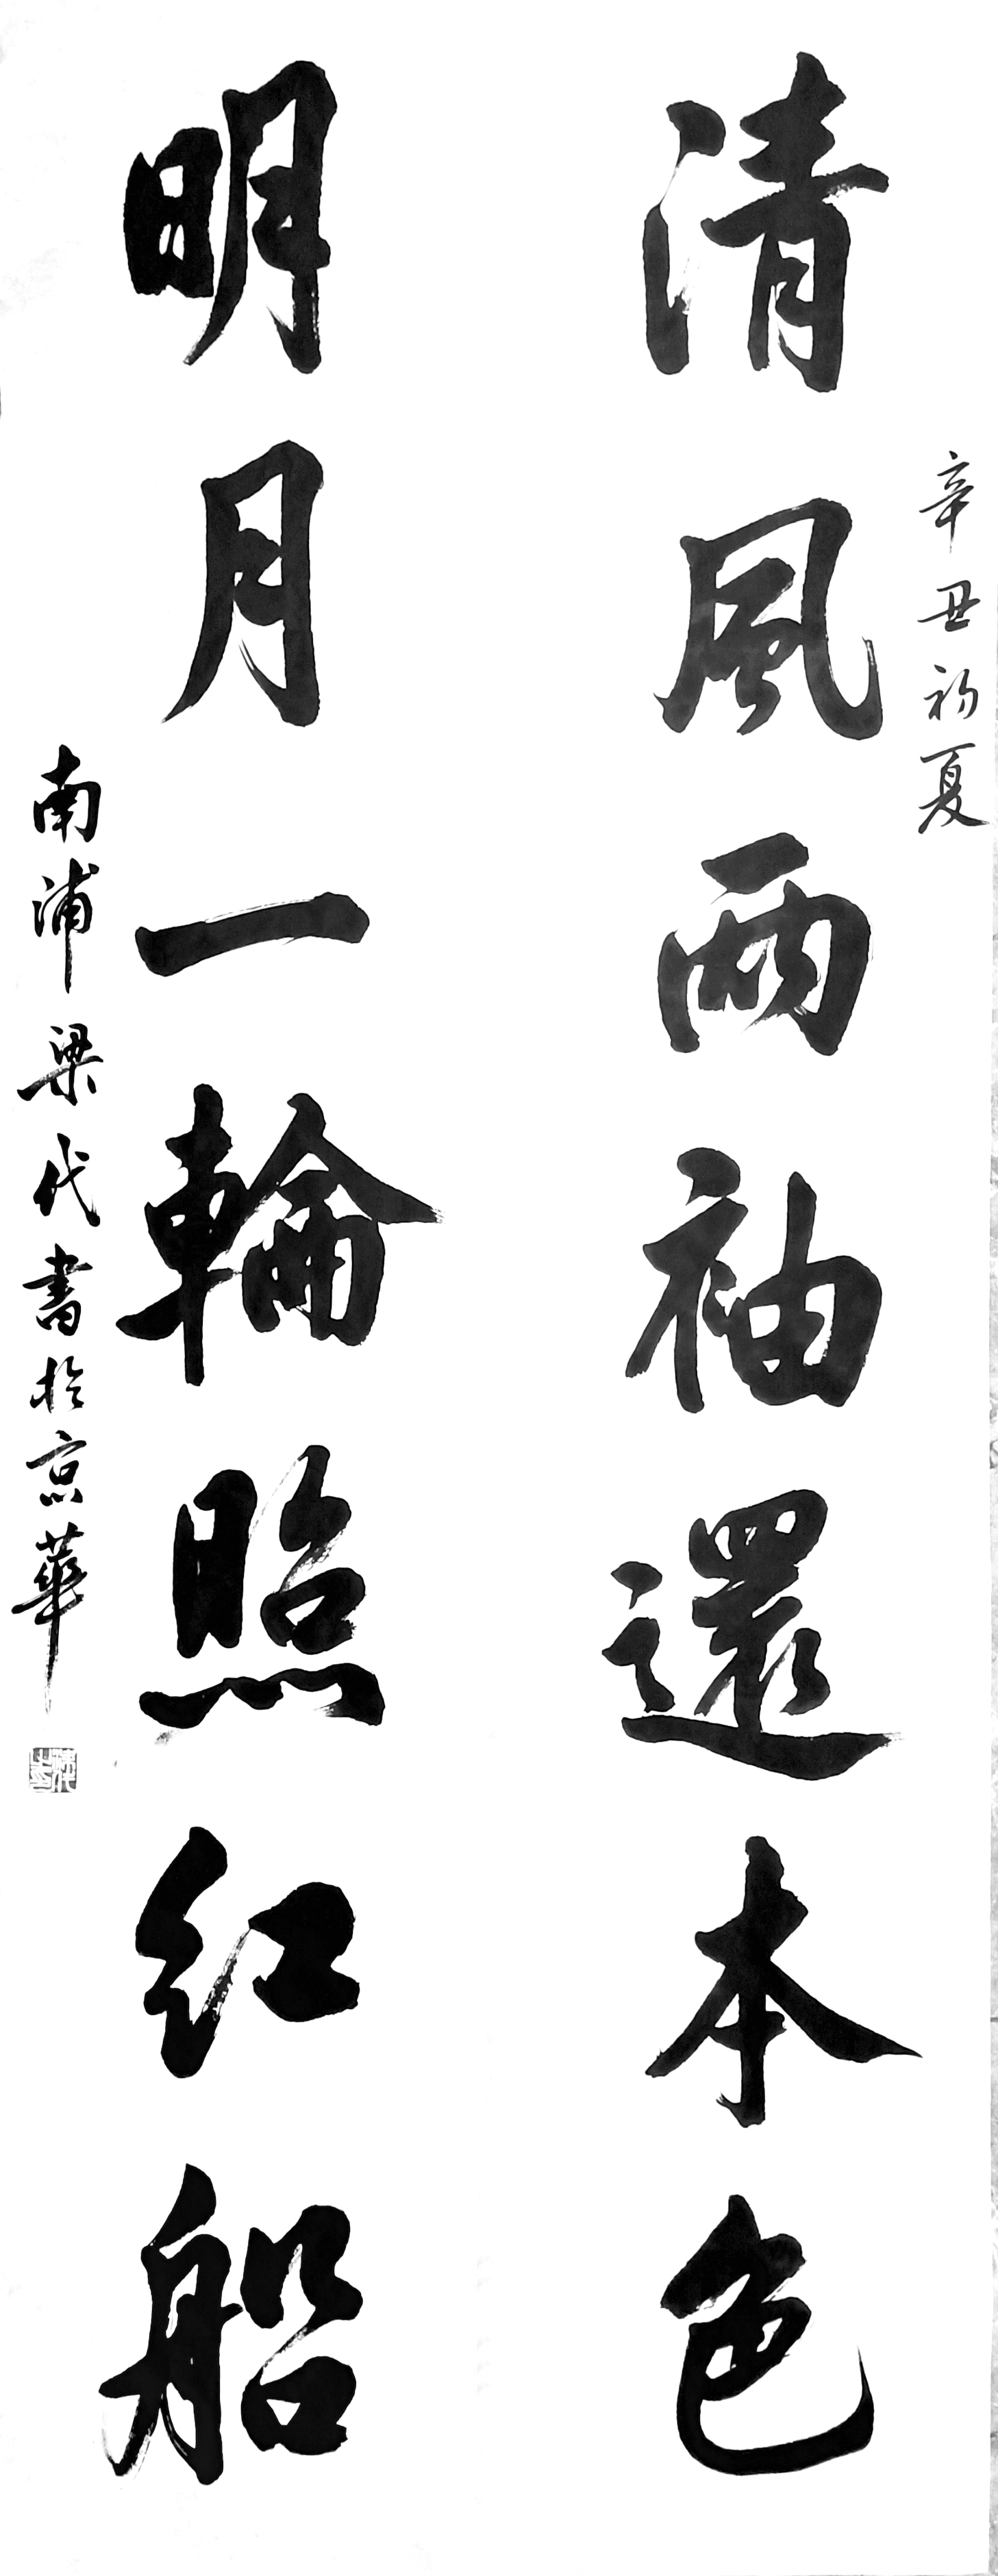 辛丑初夏
清風兩袖還本色
明月一輪照红船
南浦梁代書於京華